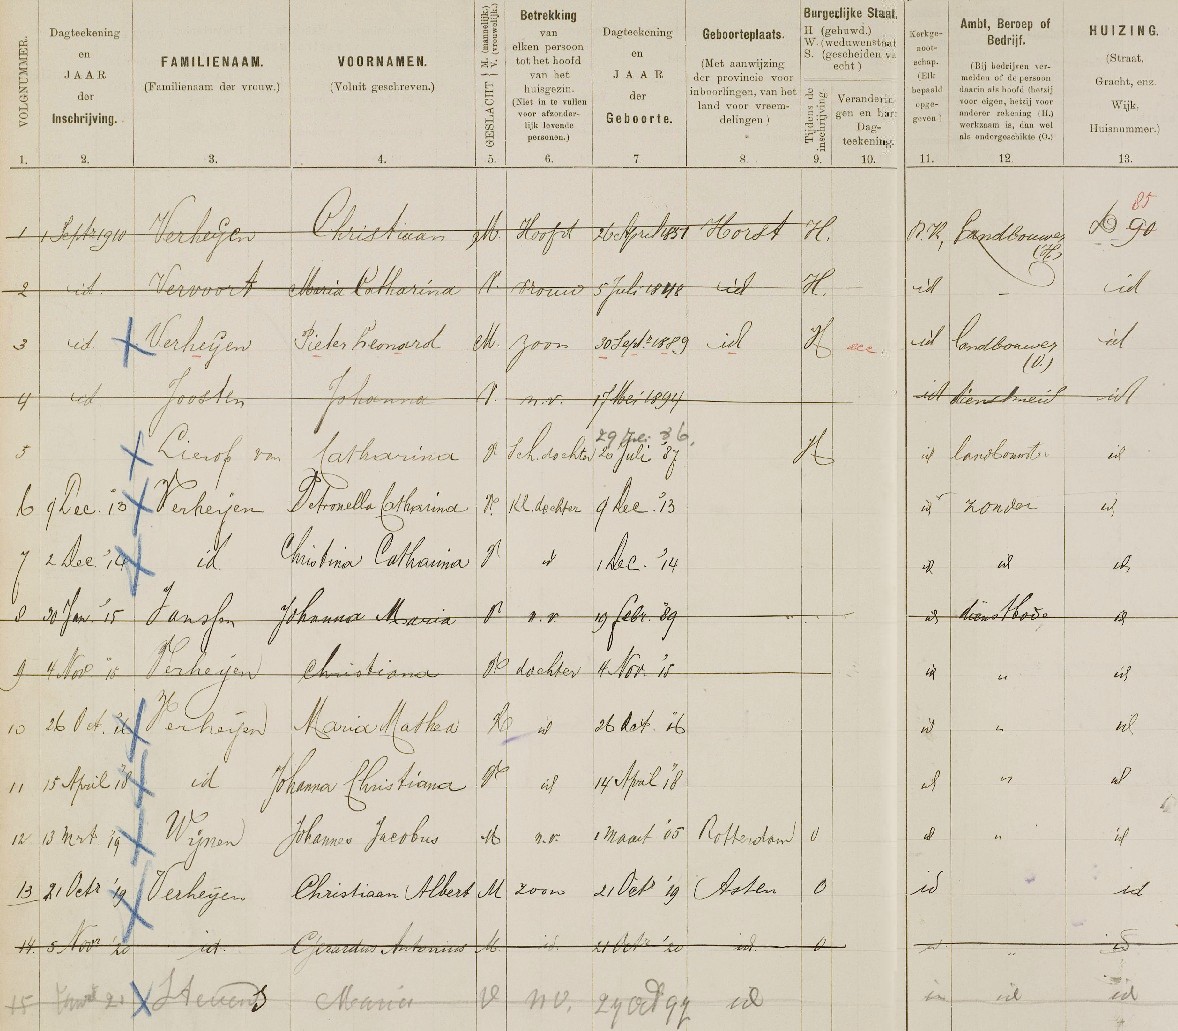 VOLGNUMMER.
Dagteekening
en
JAAR
der
Inschrijving.
FAMILIENAAM.
(Familienaam der vrouw.)
VOORNAMEN.
(Voluit geschreven.)
GESLACHT M. (mannelijk.) V. (vrouwelijk.)
Betrekking
van
elken persoon
tot het hoofd
van het
huisgezin.
(Niet in te vullen
voor afzonder-
lijk levende
personen.)
Dagteekening
en
JAAR
der
Geboorte.
Geboorteplaats.
(Met aanwijzing
der provincie voor
inboorlingen, van het
land voor vreem-
delingen)
Burgerlijke Staat.
H (gehuwd.)
W. (weduwenstaat
S. (gescheiden va
echt)
Tijdens de
inschrijving
Veranderin
gen en har
Dag-
teekening.
Kerkge-
noot-
schap.
(Elk
bepaald
opge-
geven)
Ambt, Beroep of
Bedrijf.
(Bij bedrijven ver-
melden of de persoon
daarin als hoofd (hetzij
voor eigen, hetzij voor
anderer rekening (H.)
werkzaam is, dan wel
als ondergeschikte (O.)
HUIZING.
(Straat,
Gracht, enz.
Wijk,
Huisnummer.)
1. 2. 3. 4. 5. 6. 7 8. 9. 10. 11. 12 13.
85
1 1 Sept 1910 Verheijen Christiaan M. Hoofd 26 April 1851 Horst H. R.K. Landbouwer 90
(H)
2 id. Vervoort Maria Catharina V. vrouw 5 Juli 1848 id H. id - id
3 id. Verheijen Pieter Leonard M. zoon 30 Sept 1889 id H acc. id landbouwer id
(O.)
4 id Joosten Johanna V. n.v. 17 Mei 1894 id dienstmeid id
29 86.
5 Lierop van Catharina V Sch. dochter 26 Juli '87 H id landbouwst. id
6 9 Dec. '13 Verheijen Petronella Catharina V. Kl. dochter 9 Dec. '13 id zonder id.
7 2 Dec. '14 id Christina Catharina V id 1 Dec. '14 id id id.
8 30 Jan. '15 Janssen Johanna Maria V n.v. 19 febr. '89 id dienstbode id
9 4 Nov '15 Verheijen Christiana V dochter 4 Nov. '15 id " id
10 26 Oct. '16 Verheijen Maria Mathea V id 26 Oct. '16 id " id
11 15 April '18 id Johanna Christiana V id 14 April '18 id " id
12 13 Mrt '19 Wijnen Johannes Jacobus M n.v. 1 Maart '05 Rotterdam O id " id
13 21 Octr '19 Verheijen Christiaan Albert M zoon 21 Octr '19 Asten O id id
14. 5 Nov '20 id. Gerardus Antonius M id. 21 Octr '20 id. O id " id
15 21 Stevens Maria V n.v. 27 Oct 97 id id id